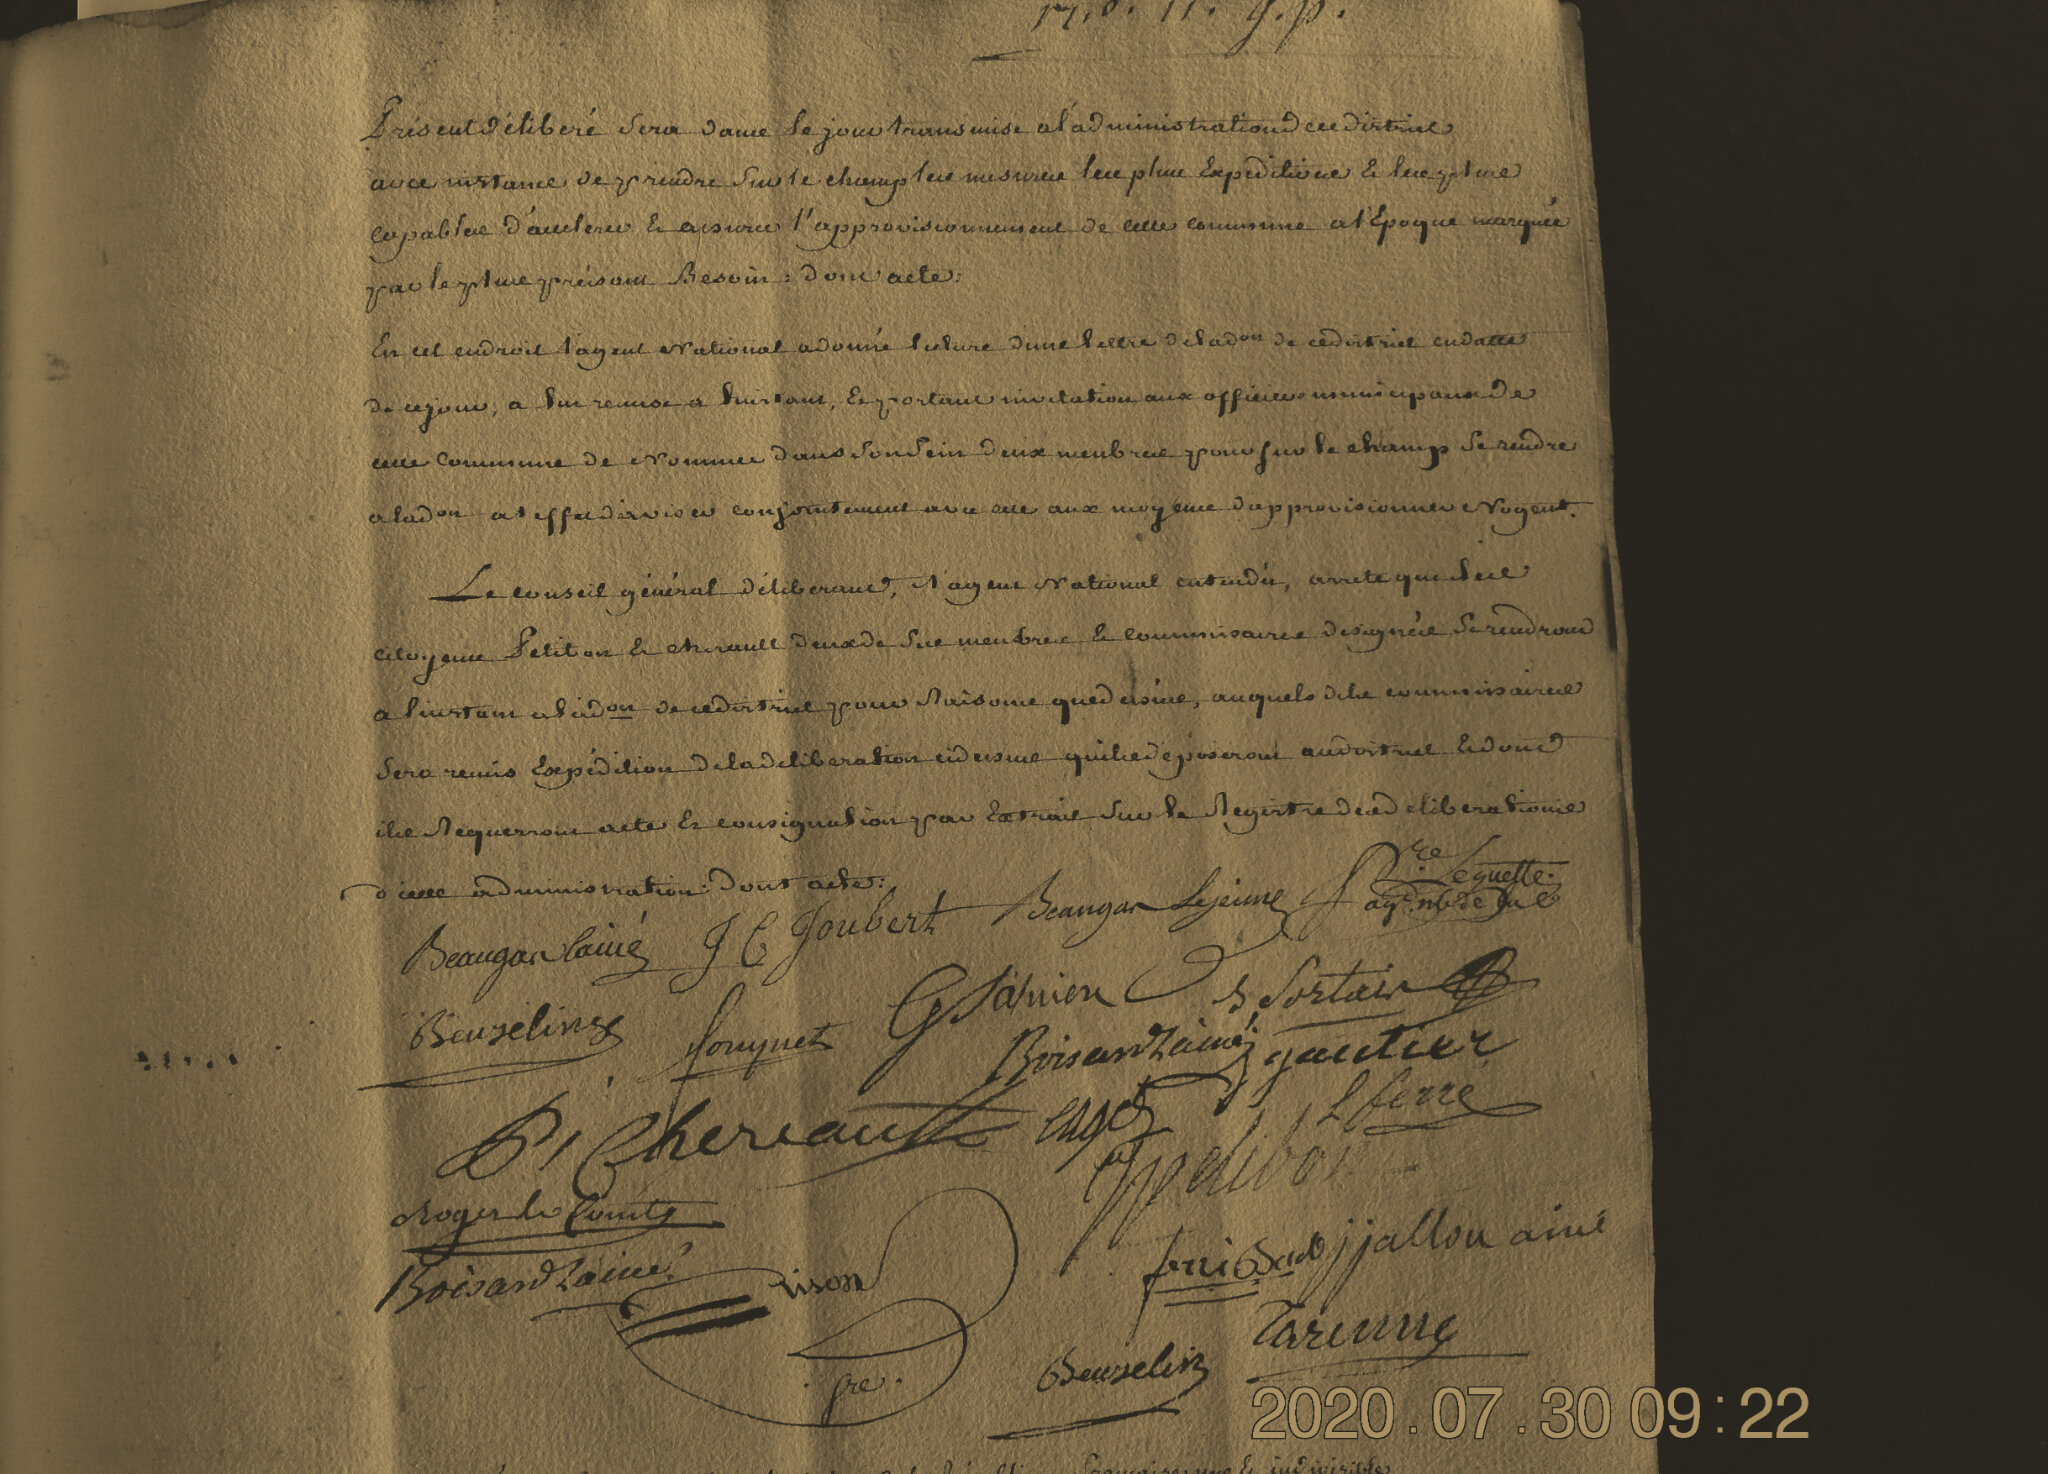 Présent délibéré sera dans le jour transmise a l'administration de ce district
avec instance de prendre sur le champ les mesures les plus Expéditives & les plus
capables d'accelerer & assurer l'approvisionnement de cette commune a l'Epoque marquée
par le plus pressant Besoin : dont acte :
En cet endroit l'agent National a donné lecture d'une lettre de l'adon de ce district en datte
de ce jour, a lui remise a l'instant, & portant invitation aux officiers municipaux de
cette Commune de Nommer dans son sein deux membres pour sur le champ se rendre
a l'adon a l'effet d'aviser conjointement avec elle aux moyens d'approvisionner Nogent.
Le conseil général déliberant, l'agent National entendu, arrete que les
citoyens Petitbon & cheriault deux de ses membres & commissaires designés se rendront
a l'instant a l'adon de ce district pour Raisons que dessus, auxquels dits commissaires
sera remis Expédition de la déliberation cidessus qu'ils déposeront au district & dont
ils Requerront acte & consignation par Extrait sur le Registre des déliberations
d'icelle administration : dont acte :
Beaugars lainé J C Joubert Beaugars Lejeune Lequette
Beuzelin fouquet G Janien Sortais
Boisard Lainé gautier
P. Cheriault L ferré
petitbon
Roger le Comte
Boisard Lainé jjallou ainé
Beuzelin Tarenne
2020.07.30 09:22